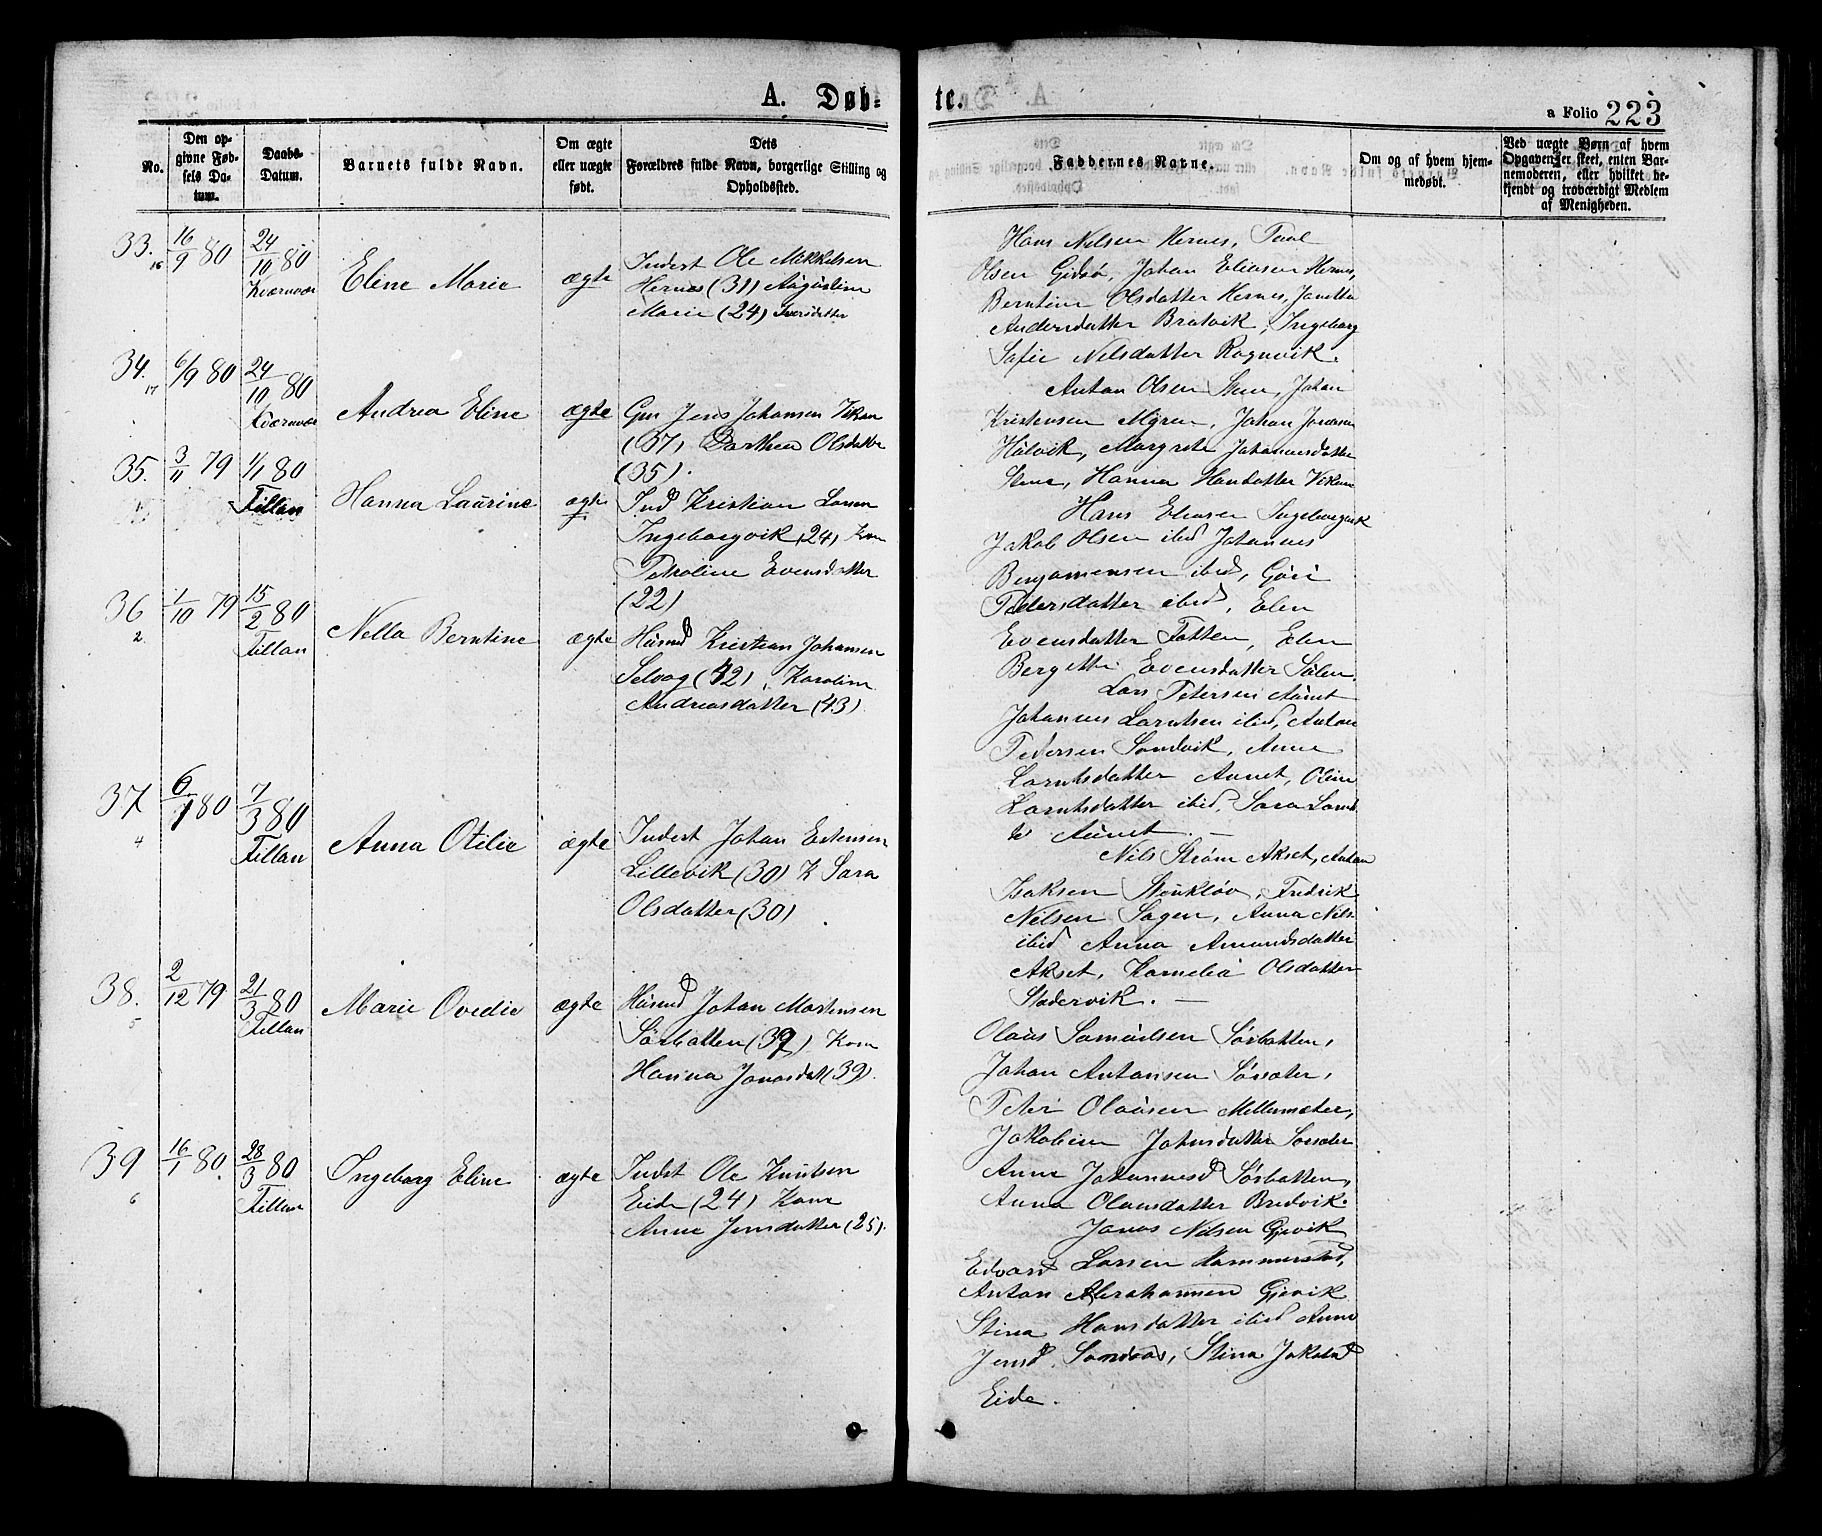 A. Døb-
te.
a Folio 223
No.
Den op-
givne Fød-
sels Da-
tum.
Daabs-
Datum.
Barnets fulde Navn.
Om ægte
eller uægte
født.
Dets
Forældres fulde Navn, borgerlige Stilling og
Opholdssted.
Faddernes Navne.
Om og af hvem hjem-
medøbt.
Ved uægte Børn af hvem
Opgaven er skeet, enten Bar-
nemoderen, eller hvilket be-
kjendt og troværdigt Medlem
af Menigheden.
33.
16
16/9 80
24/10 80
Kværnvær
Eline Marie
ægte
Inderst Ole Mikkelsen
Hernes (31) Augustine
Marie (24) Iversdatter
Hans Nilsen Hernes, Paal
Olsen Gidsø, Johan Eliasen Hernes,
Berntine Olsdatter Hernes, Janetta
Andersdatter Bratvik, Ingeborg
Sofie Nilsdatter Rognvik.
34.
17
6/9 80
24/10 80
Kværnvær
Andrea Eline
ægte
Gm Jens Johansen Vikan
(37), Dorthea Olsdatter
(35).
Anton Olsen Stene, Johan
Kristensen Myren, Johan Jonasen
Hålvik, Margrete Johannesdatter
Stene, Hanna Hansdatter Vikan
35.
1
3/11 79
1/1 80
Fillan
Hanna Laurine
ægte
Ind Kristian Larsen
Ingeborgvik (24) Kone
Petroline Evensdatter
(22)
Hans Eliasen Ingeborgvik
Jakob Olsen ibid Johannes
Benjaminsen ibid, Gåri
Pedersdatter ibid, Elen
Evensdatter Fatten, Elen
Bergitte Evensdatter Sålen.
36
2
1/10 79
15/2 80
Fillan
Nella Berntine
ægte
Husmd Kristian Johansen
Selvog (42), Karoline
Andreasdatter (43)
Lars Petersen Aünet
Johannes Larntsen ibid, Anton
Pedersen Sandvik, Anne
Larntsdatter Aunet, Oline
Larntsdatter ibid, Sara Larnts
dr Aünet. —
37
4
6/1 80
7/3 80
Fillan
Anna Otilie
ægte
Inderst Johan Estensen
Lillevik (30) K Sara
Olsdatter (30).
Nils Strøm Akset, Anton
Isaksen Stenkløv, Fredrik
Nilsen Sagen, Anna Nils
ibid Anna Amundsdatter
Akset, Kornelia Olsdatter
Stadervik. —
38.
5
2/12 79
21/3 80
Fillan
Marie Ovedie
ægte
Husmd Johan Mortensen
Sörbatten (39). Kone
Hanna Jonasdatt (39).
Olaus Samüelsen Sørbatten,
Johan Antonsen Sørsæter,
Peter Olaüsen Mellemsæter,
Jakobine Johnsdatter Sørsæter
Anne Johannesd Sørbatten,
Anna Olausdatter Bredvik.
39
6
16/1 80.
28/3 80
Fillan
Ingeborg Eline
ægte
Indst Ole Knutsen
Eide (24) Kone
Anne Jensdatter (25).
Jonas Nilsen Gjevik
Edvard Larsen Hammerstad,
Anton Abrahamsen Gjevik
Stina Hansdatter ibid Anne
Jensd. Sandaas, Stina Jakobd
Eide.